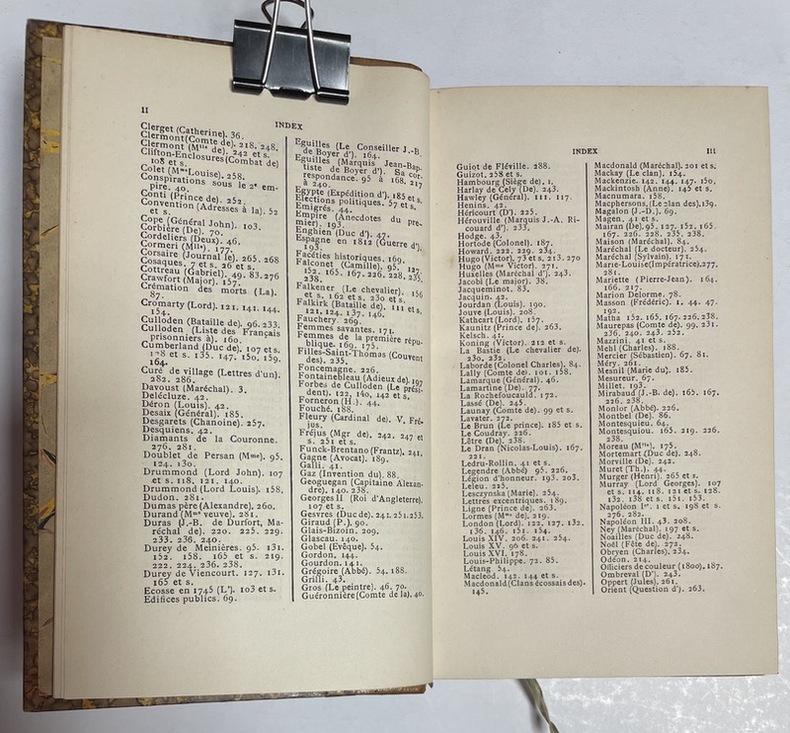 II
INDEX
Clerget (Catherine). 36.
Clermont (Comte de). 218. 248.
Clermont (Mlle de). 242 et s.
Clifton-Enclosures (Combat de)
108 et s.
Colet (Mme Louise). 258.
Conspirations sous le 2e em-
pire. 40.
Conti (Prince de). 252.
Convention (Adresses à la). 52
et s.
Cope (Général John). 103.
Corbière (De). 70.
Cordeliers (Deux). 46.
Cormeri (Mlle). 177.
Corsaire (Journal le). 265. 268
Cosaques. 7 et s. 26 et s.
Cottreau (Gabriel). 49. 83. 276
Crawfort (Major). 157.
Crémation des morts (La).
87.
Cromarty (Lord). 121. 141. 144.
154.
Culloden (Bataille de). 96. 233.
Culloden (Liste des Français
prisonniers à). 160.
Cumberland (Duc de). 107 et s.
128 et s. 135. 147. 150. 159.
164.
Curé de village (Lettres d'un).
282. 286.
Davoust (Maréchal). 3.
Delécluze. 42.
Déron (Louis). 42.
Desaix (Général). 185.
Desgarets (Chanoine). 257.
Desquiens. 42.
Diamants de la Couronne.
276. 281.
Doublet de Persan (Mme). 95.
124. 130.
Drummond (Lord John). 107
et s. 118. 121. 140.
Drummond (Lord Louis). 158.
Dudon. 281.
Dumas père (Alexandre). 260.
Durand (Mme veuve). 281.
Duras (J.-B. de Durfort, Ma-
réchal de). 220. 225. 229.
233. 236. 240.
Durey de Meinières. 95. 131.
152. 158. 165 et s. 219.
222. 224. 236. 238.
Durey de Viencourt. 127. 131.
165 et s.
Ecosse en 1745 (L'). 103 et s.
Edifices publics. 69.
Eguilles (Le Conseiller J.-B.
de Boyer d'). 164.
Eguilles (Marquis Jean-Bap-
tiste de Boyer d'). Sa cor-
respondance. 95 à 168. 217
à 240.
Egypte (Expédition d'). 185 et s.
Elections politiques. 57 et s.
Emigrés. 44.
Empire (Anecdotes du pre-
mier). 193.
Enghien (Duc d'). 47.
Espagne en 1812 (Guerre d').
193.
Facéties historiques. 169.
Falconet (Camille). 95. 127.
152. 165. 167. 226. 228. 235.
238.
Falkener (Le chevalier). 156
et s. 162 et s. 230 et s.
Falkirk (Bataille de). 111 et s.
121. 124. 137. 146.
Fauchery. 269.
Femmes savantes. 171.
Femmes de la première répu-
blique. 169. 175.
Filles-Saint-Thomas (Couvent
des). 235.
Foncemagne. 226.
Fontainebleau (Adieux de). 197
Forbes de Culloden (Le prési-
dent). 122. 140. 142 et s.
Forneron (H.). 44.
Fouché. 188.
Fleury (Cardinal de). V. Fré-
jus.
Fréjus (Mgr de). 242. 247 et
s. 251 et s.
Funck-Brentano (Frantz). 241.
Gagne (Avocat). 189.
Galli. 41.
Gaz (Invention du). 88.
Geoguegan (Capitaine Alexan-
dre). 140. 238.
Georges II (Roi d'Angleterre).
107 et s.
Gesvres (Duc de). 241. 251. 253.
Giraud (P.). 90.
Glais-Bizoin. 209.
Glascau. 140.
Gobel (Evêque). 54.
Gordon. 144.
Gourdon. 141.
Grégoire (Abbé). 54. 188.
Grilli. 43.
Gros (Le peintre). 46. 70.
Guéronnière (Comte de la). 40.
INDEX
III
Guiot de Fléville. 288.
Guizot. 258 et s.
Hambourg (Siège de). 1.
Harlay de Cely (De). 243.
Hawley (Général). 111. 117.
Henins. 42.
Héricourt (D'). 225.
Hérouville (Marquis J.-A. Ri-
couard d'). 233.
Hodge. 43.
Hortode (Colonel). 187.
Howard. 222. 229. 234.
Hugo (Victor). 73 et s. 213. 270
Hugo (Mme Victor). 271.
Huxelles (Maréchal d'). 243.
Jacobi (Le major). 38.
Jacqueminot. 83.
Jacquin. 42.
Jourdan (Louis). 190.
Jouve (Louis). 208.
Kathcart (Lord). 157.
Kaunitz (Prince de). 263.
Kelsch. 41.
Koning (Victor). 212 et s.
La Bastie (Le chevalier de).
230. 232.
Laborde (Colonel Charles). 84.
Lally (Comte de). 101. 158.
Lamarque (Général). 46.
Lamartine (De). 77.
La Rochefoucauld. 172.
Lassé (De). 245.
Launay (Comte de). 99 et s.
Lavater. 272.
Le Brun (Le prince). 185 et s.
Le Coudray. 226.
Lêtre (De). 238.
Le Dran (Nicolas-Louis). 167.
221.
Ledru-Rollin. 41 et s.
Legendre (Abbé) 95. 226.
Légion d'honneur. 193. 203.
Leleu. 215.
Lesczynska (Marie). 254.
Lettres excentriques. 189.
Ligne (Prince de). 263.
Lormes (Mme de). 219.
London (Lord). 122. 127. 132.
136. 146. 151. 154.
Louis XIV. 206. 241. 254.
Louis XV. 96 et s.
Louis XVI. 178.
Louis-Philippe. 72. 85.
Létang. 54.
Macleod. 142. 144 et s.
Macdonald (Clans écossais des).
145.
Macdonald (Maréchal). 201 et s.
Mackay (Le clan). 154.
Mackenzie. 142. 144. 147. 150.
Mackintosh (Anne). 145 et s.
Macnumara. 158.
Macphersons, (Le clan des). 139.
Magalon (J.-D.). 69.
Magen. 41 et s.
Mairan (De). 95. 127. 152. 165.
167. 226. 228. 235. 238.
Maison (Maréchal). 84.
Maréchal (Le docteur). 254.
Maréchal (Sylvain). 171.
Marie-Louise (Impératrice). 277.
281.
Mariette (Pierre-Jean). 164.
166. 217.
Marion Delorme. 78.
Masson (Frédéric). 1. 44. 47.
192.
Matha 152. 165. 167. 226. 238.
Maurepas (Comte de). 99. 231.
236. 240. 243. 252.
Mazzini. 41 et s.
Meil (Charles). 188.
Mercier (Sébastien). 67. 81.
Méry. 261.
Mesnil (Marie du). 185.
Mesureur. 67.
Millet. 193.
Mirabaud (J.-B. de). 165. 167.
226. 238.
Monlor (Abbé). 226.
Montbel (De). 86.
Montesquieu. 64.
Montesquiou. 165. 219. 226.
238.
Moreau (Mme). 175.
Mortemart (Duc de). 248.
Morville (De). 242.
Muret (Th.). 44.
Murger (Henri). 265 et s.
Murray (Lord Georges). 107
et s. 114. 118. 121 et s. 128.
132. 138 et s. 151. 153.
Napoléon Ier. 1 et s. 198 et s.
276. 282.
Napoléon III. 43. 208.
Ney (Maréchal). 197 et s.
Noailles (Duc de). 248.
Noël (Fête de). 272.
Obryen (Charles). 234.
Odéon. 214.
Officiers de couleur (1800). 187.
Ombreval (D'). 243.
Oppert (Jules). 261.
Orient (Question d'). 263.